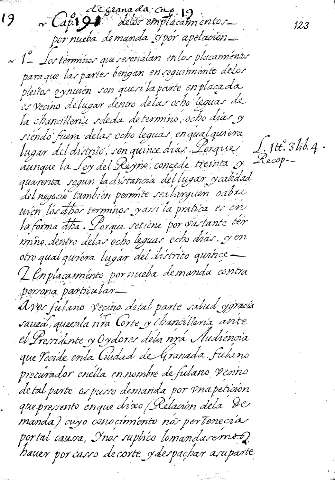 de Granada, Cap. 19
19
123
Capº 19 de los emplacamientos
por nueba demanda y por apelacion
1º Los terminos que señalan en los placamientos
para que las partes bengan en seguimiento de los
pleitos y nucion son que si la parte en plaçada
es vecino del lugar dentro de las ocho leguas de
la chancilleria se le da de termino, ocho dias y
siendo fuera de las ocho leguas, en qualquiera
lugar del distrito, son quince dias. Porque
aunque la Ley del Reyno, concede treinta y
quarenta segun la distancia del lugar y calidad
del negocio tambien permite se alarguen o abre
uien los dhos terminos, y assi la pratica es en
la forma dha. Porque se tiene por bastante ter
mino, dentro de las ocho leguas ocho dias, y en
otro qualquiera lugar del distrito quince
L. 1 tt. 3 lib. 4
Recop.
2 Enplacamiento por nueba demanda contra
persona particular
A vos fulano vecino de tal parte salud y gracia
saued, que en la nra Corte y chancilleria ante
el Presidente y Oydores de la nra Audiencia
que Reside en la Ciudad de Granada, fulano
procurador en ella en nombre de fulano vecino
de tal parte os pusso demanda por vna peticion
que presento en que dixo (Relacion de la De
manda) cuyo conocimiento nos pertenecia
por tal causa, y nos suplico lo mandasemos
hauer por casso de corte, y despachar a su parte